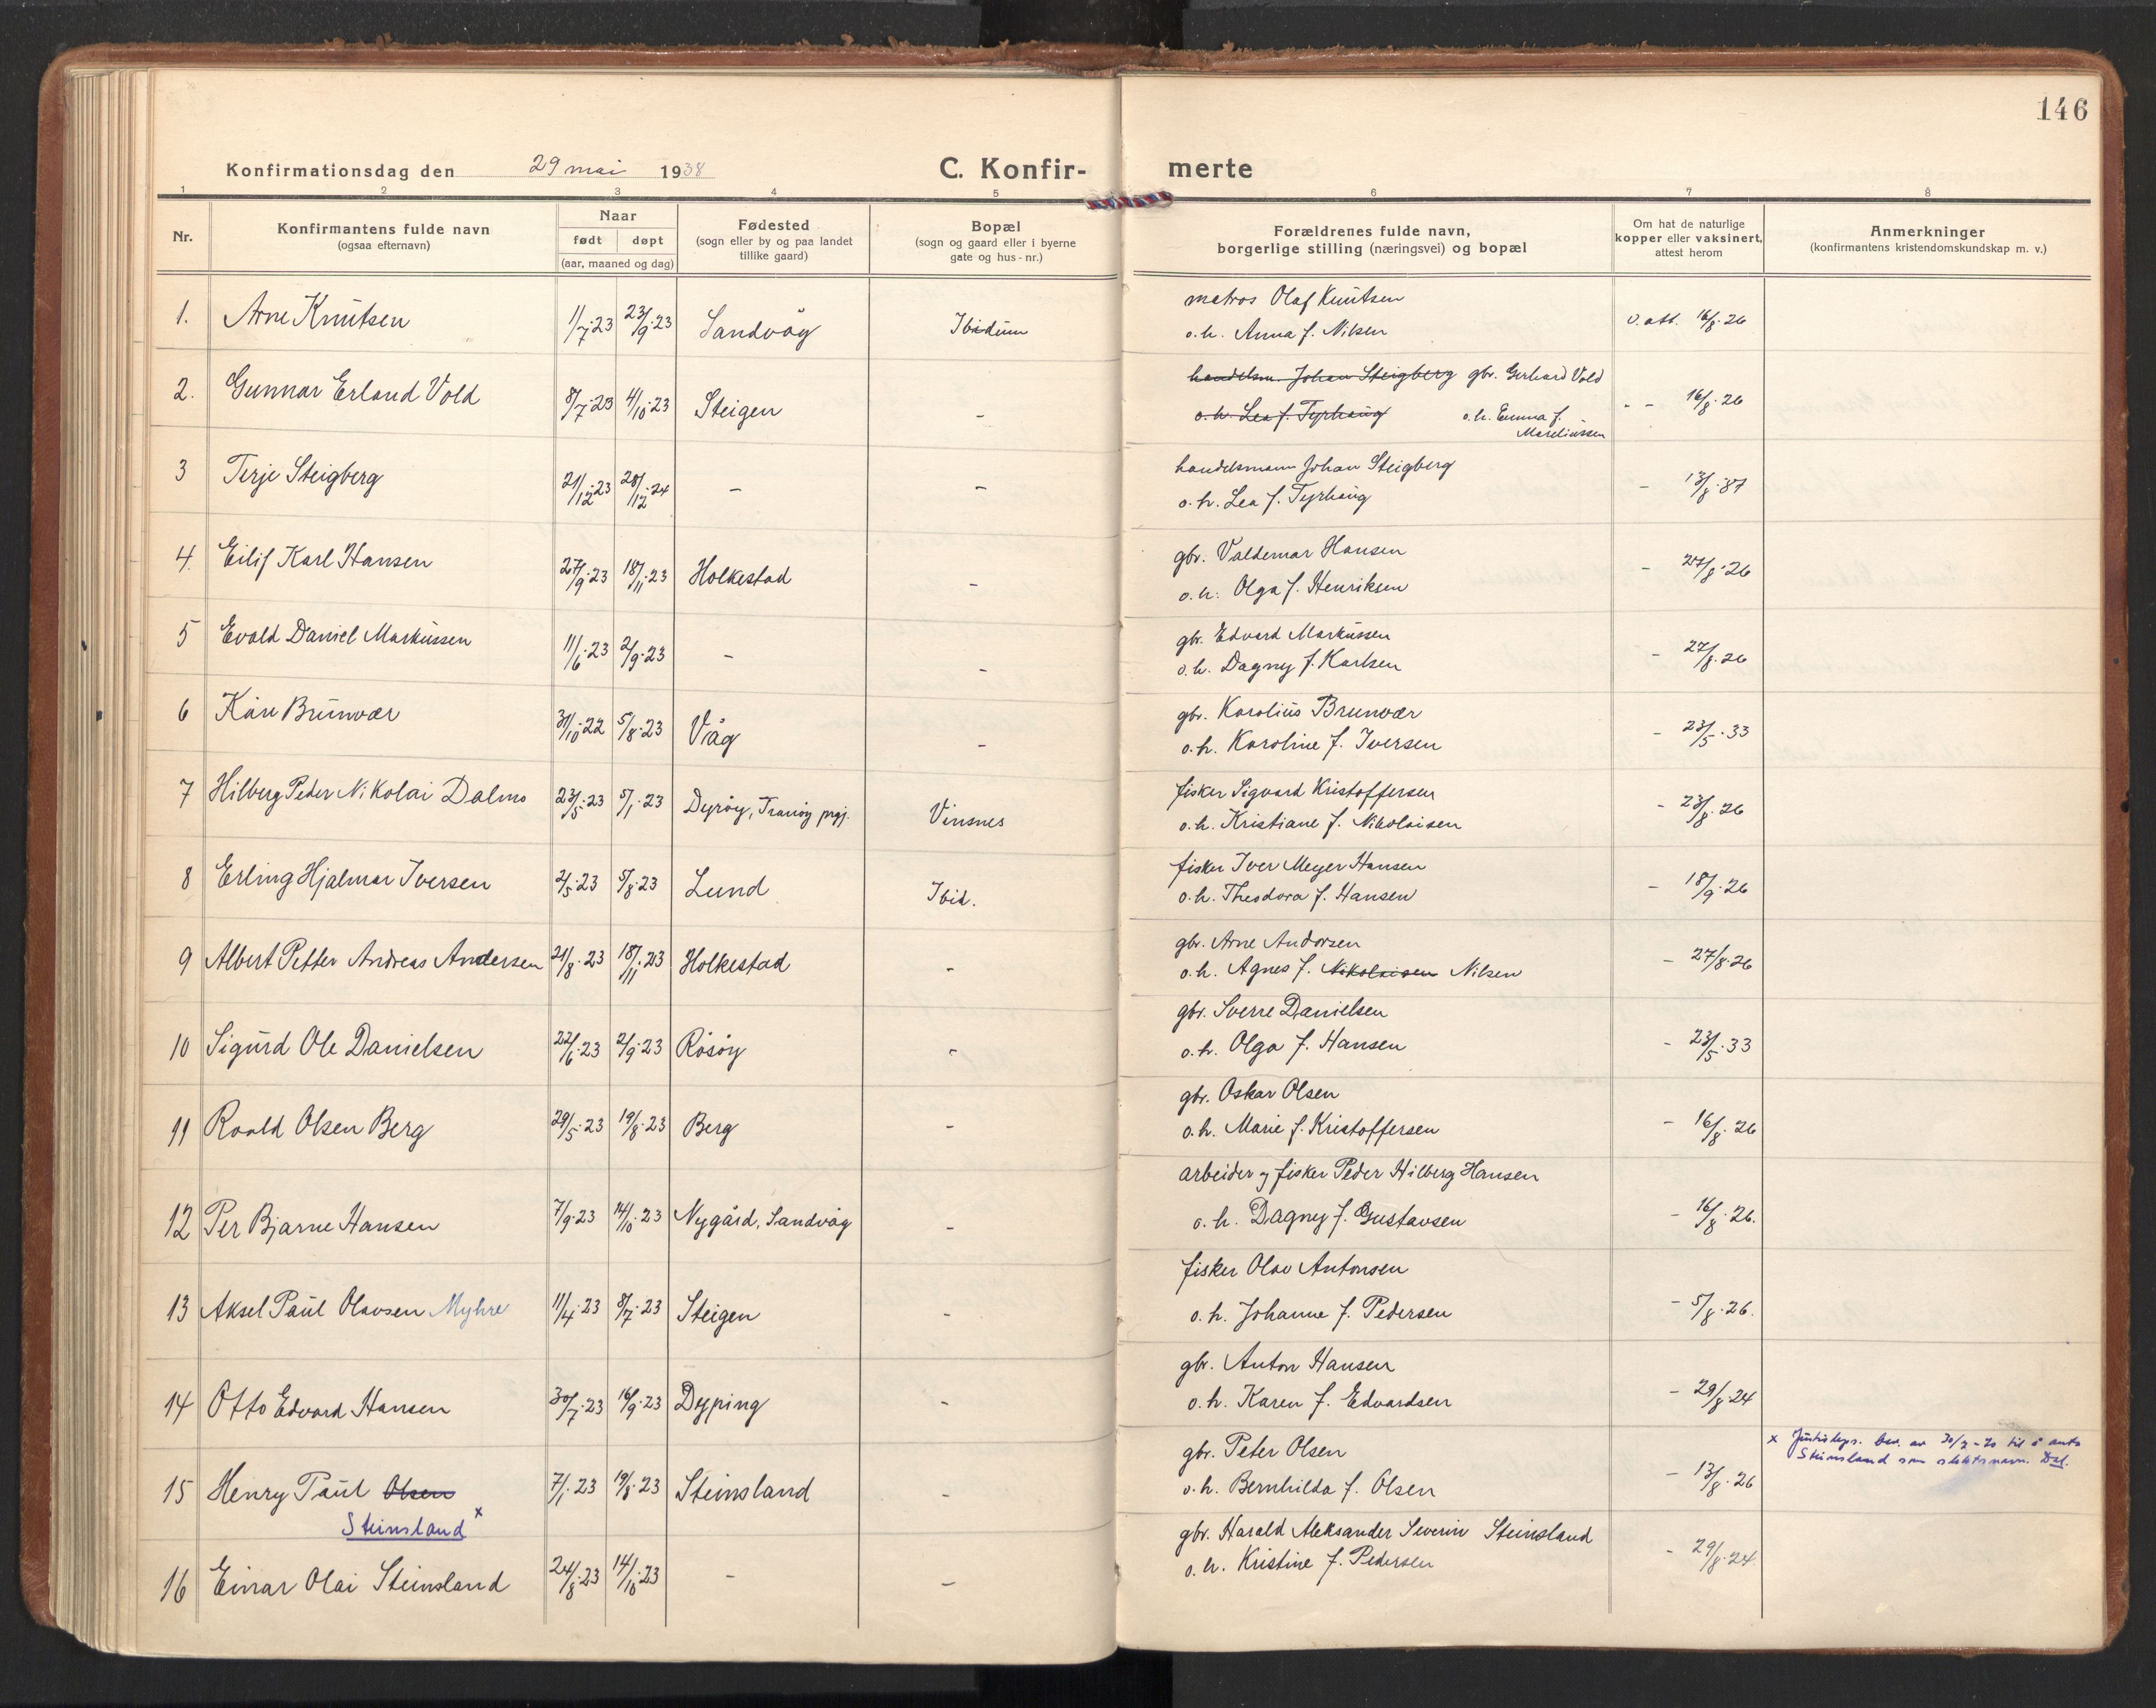 146
Konfirmationsdag den 29 mai 1938 C. Konfir- merte
1 2 3 4 5 6 7 8
Nr.
Konfirmantens fulde navn
(ogsaa efternavn)
Naar
født døpt
(aar, maaned og dag)
Fødested
(sogn eller by og paa landet
tillike gaard)
Bopæl
(sogn og gaard eller i byerne
gate og hus-nr.)
Forældrenes fulde navn,
borgerlige stilling (næringsvei) og bopæl
Om hat de naturlige
kopper eller vaksinert,
attest herom
Anmerkninger
(konfirmantens kristendomskundskap m. v.)
1. Arne Knutsen 1/7-23 23/9-23 Sandvåg Ibidum
matros Olaf Knutsen
o.h. Anna f. Nilsen
v. att. 16/8-26
2. Gunnar Erland Vold 8/7-23 4/10-23 Steigen -
handelsm. Johan Steigberg gbr. Gerhard Vold
o.h. Lea f. Tyrhaug o.h. Emma f.
Mareliussen
- - 16/8-26
3 Terje Steigberg 21/12-23 28/12-24 - -
handelsmann Johan Steigberg
o.h. Lea f. Tyrhaug
- 13/8-37
4. Eilif Karl Hansen 27/9-23 18/11-23 Holkestad -
gbr. Valdemar Hansen
o.h. Olga f. Henriksen
- 27/8-26
5 Evald Daniel Markussen 11/6-23 2/9-23 - -
gbr. Edvard Markussen
o.h. Dagny f. Karlsen
- 27/8-26
6 Kåre Brunvær 31/10-22 5/8-23 Våg -
gbr. Karolius Brunvær
o.h. Karoline f. Iversen
- 23/5-33
7 Hilberg Peder Nikolai Dalmo 23/5-23 5/1-23 Dyrøy, Tranøy prgj. Vinsnes
fisker Sigvard Kristoffersen
o.h. Kristiane f. Nikolaisen
- 23/8-26
8 Erling Hjalmar Iversen 2/5-23 5/8-23 Lund Ibid.
fisker Iver Meyer Hansen
o.h. Theodora f. Hansen
- 18/9-26
9 Albert Petter Andreas Andersen 21/8-23 18/11-23 Holkestad -
gbr. Arne Andorsen
o.h. Agnes f. Nikolaisen Nilsen
- 27/8-26
10 Sigurd Ole Danielsen 22/6-23 2/9-23 Røsøy -
gbr. Sverre Danielsen
o.h. Olga f. Hansen
- 23/5-33
11 Roald Olsen Berg 29/5-23 19/8-23 Berg -
gbr. Oskar Olsen
o.h. Marie f. Kristoffersen
- 16/8-26
12 Per Bjarne Hansen 7/9-23 14/10-23 Nygård, Sandvåg -
arbeider og fisker Peder Hilberg Hansen
o.h. Dagny f. Gustavsen
- 16/8-26.
13 Aksel Paul Olavsen Myhre 11/4-23 8/7-23 Steigen -
fisker Olav Antonsen
o.h. Johanne f. Pedersen
- 5/8-26.
14 Otto Edvard Hansen 30/7-23 16/9-23 Dyping -
gbr. Anton Hansen
o.h. Karen f. Edvardsen
- 29/8-24
15 Henry Paul Olsen 7/1-23 19/8-23 Steinsland -
Steinsland x
gbr. Peter Olsen
o.h. Bernhilda f. Olsen
- 13/8-26
x Justisdep. bev. av til å anta
Steinsland som slektsnavn.
16 Einar Olai Steinsland 24/8-23 14/10-23 - -
gbr. Harald Aleksander Severin Steinsland
o.h. Kristine f. Pedersen
- 29/8-24